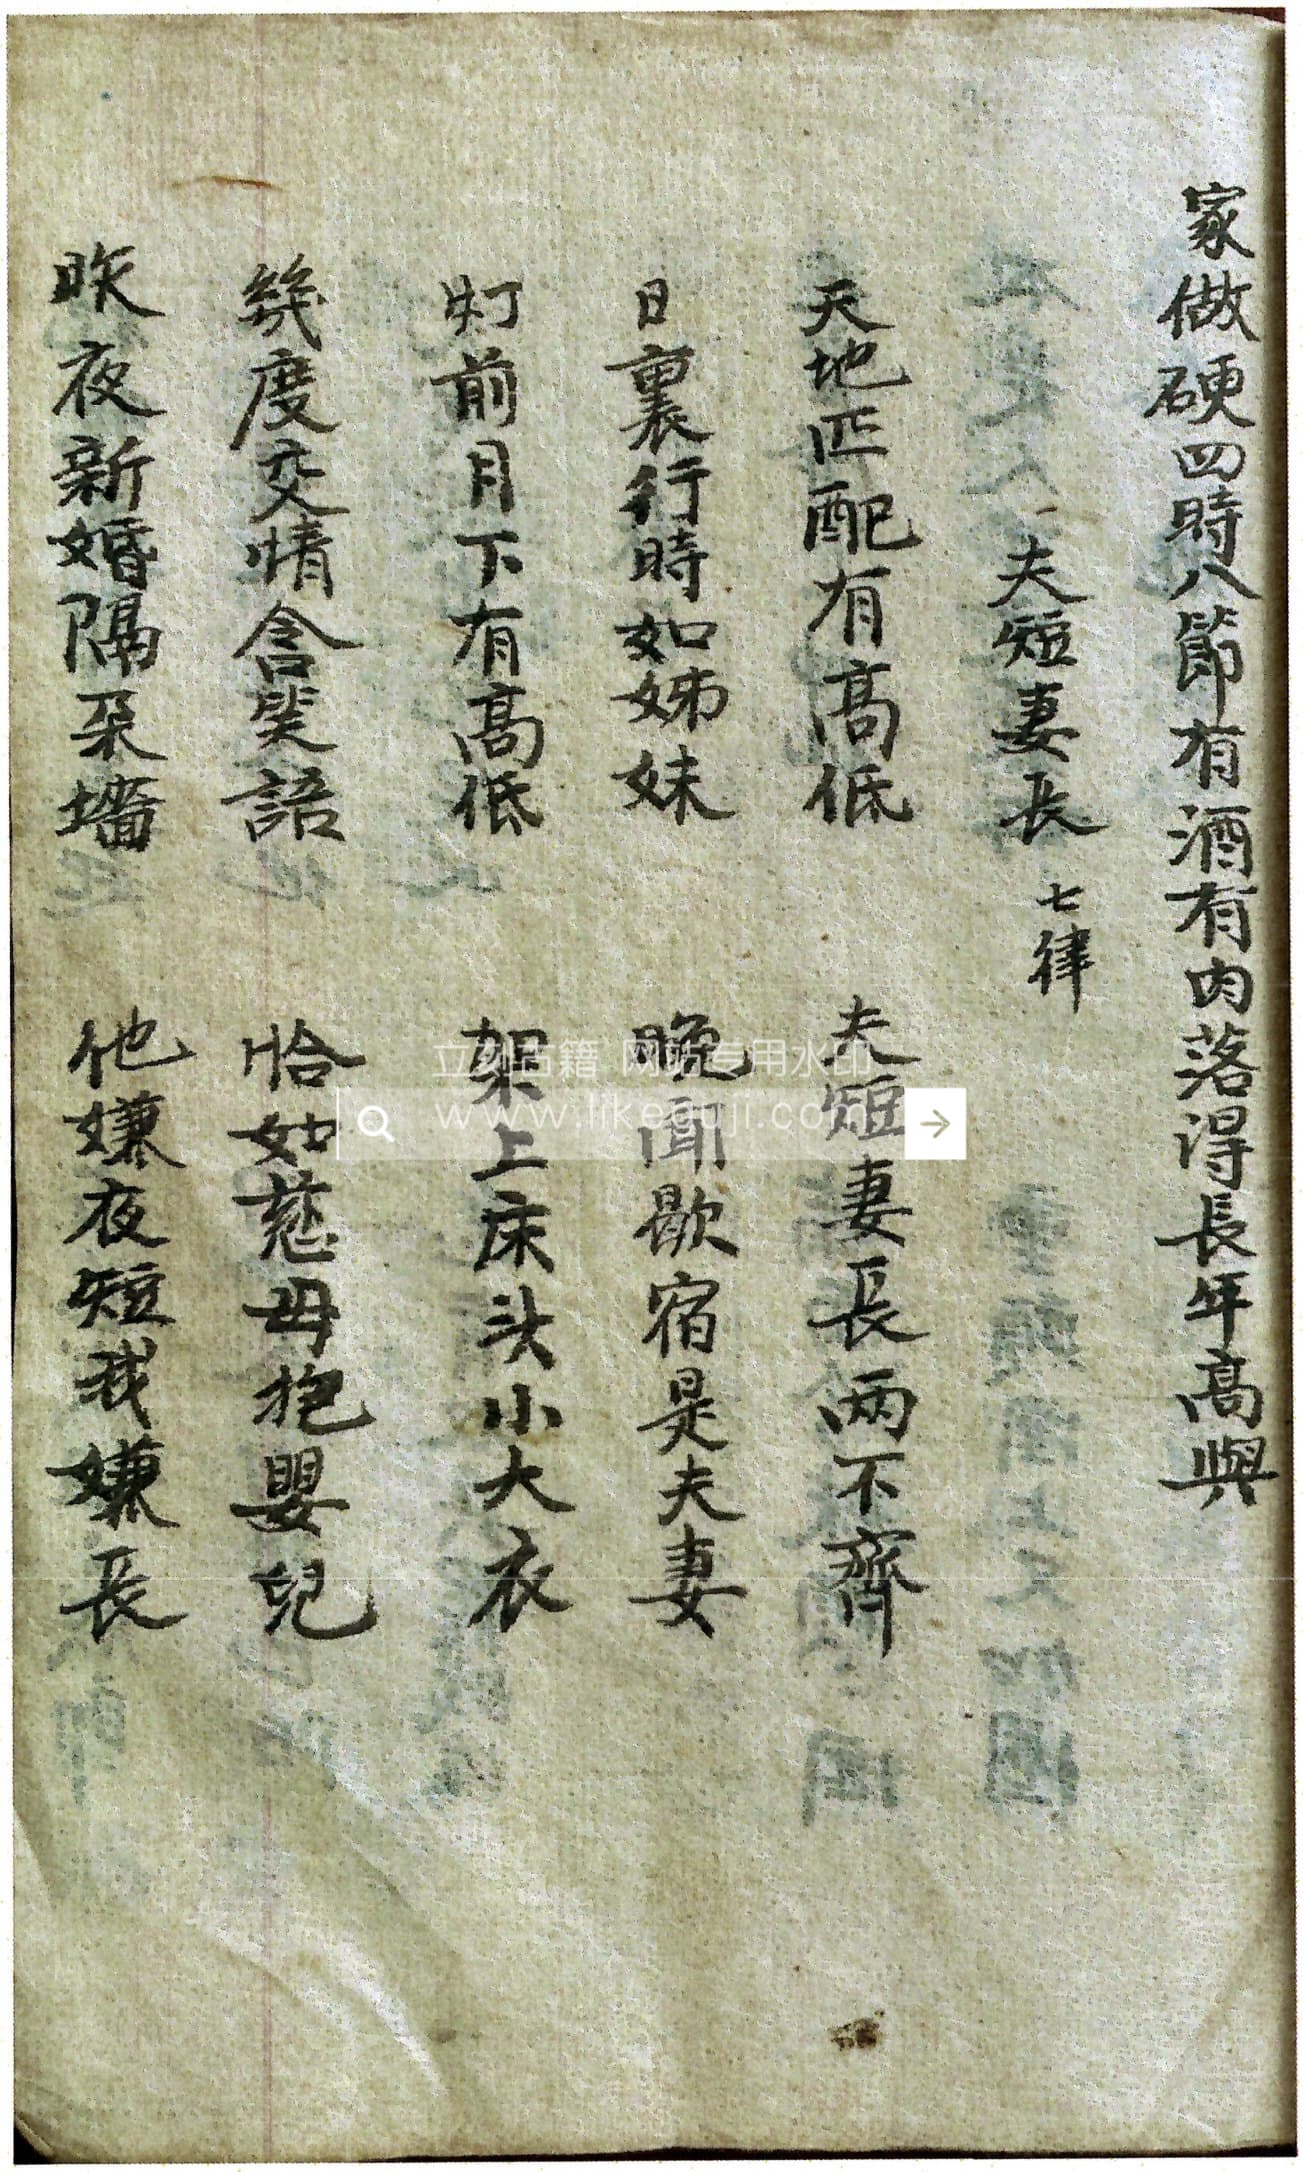 家做硬四時八節有酒有肉落得長年高興
夫短妻長 七律
天地匹配有高低 夫短妻長兩不齊
日裏行時如姊妹 晚間歇宿是夫妻
灯前月下有高低 架上床头小大衣
幾度交情含笑語 恰如慈母抱嬰兒
昨夜新婚隔朵墻 他嫌夜短我嫌長
立刻古籍 网站专用水印
www.likeguji.com